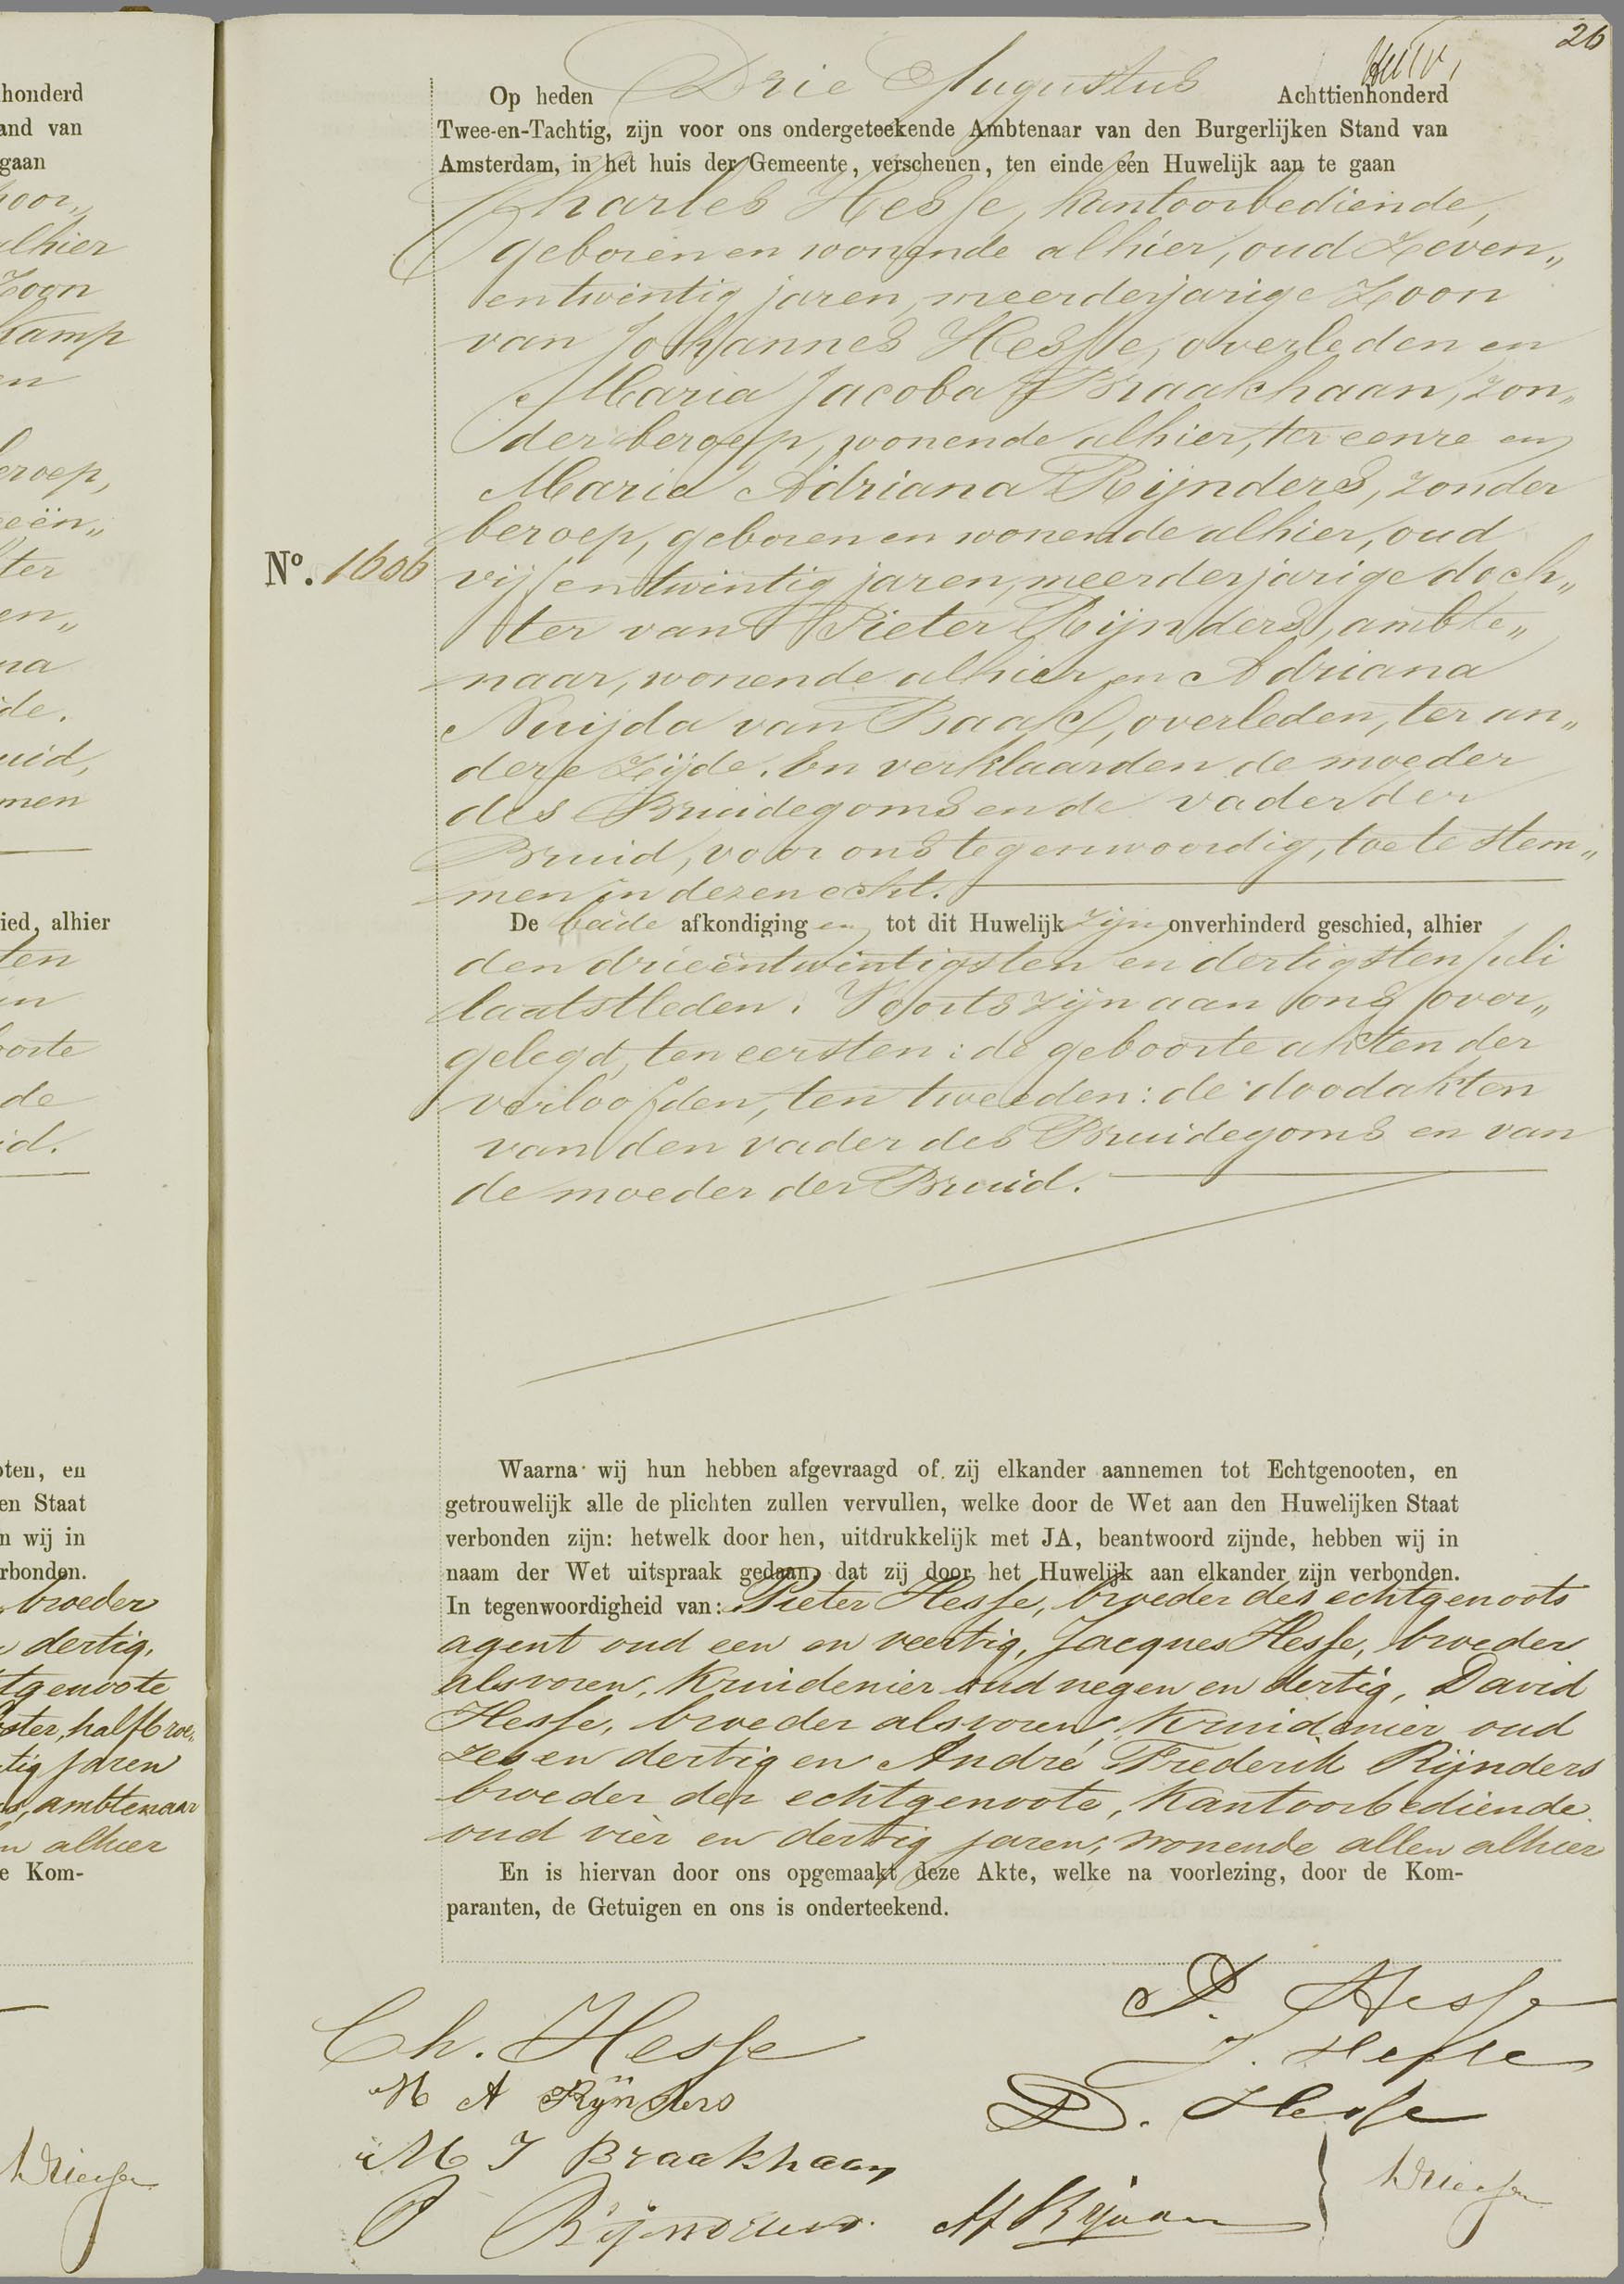 26
Op heden Drie Augustus Achttienhonderd
Twee-en-Tachtig, zijn voor ons ondergeteekende Ambtenaar van den Burgerlijken Stand van
Amsterdam, in het huis der Gemeente, verschenen, ten einde een Huwelijk aan te gaan
Charles Hesse, kantoorbediende,
geboren en wonende alhier, oud Zeven„
entwintig jaren, meerderjarige Zoon
van Johannes Hesse, overleden en
Maria Jacoba Braakhaan, zon„
der beroep, wonende alhier, ter eenre en
Maria Adriana Rijnders, zonder
beroep, geboren en wonende alhier, oud
No. 1606 vijfentwintig jaren, meerderjarige doch„
ter van Pieter Rijnders, ambte„
naar, wonende alhier en Adriana
Nuijda van Baak, overleden, ter an„
dere Zijde. En verklaarden de moeder
des Bruidegoms en de vader der
Bruid, voor ons tegenwoordig, toe te stem„
men in dezen echt.
De beide afkondigingen tot dit Huwelijk zijn onverhinderd geschied, alhier
den drieëntwintigsten en dertigsten Juli
laatstleden. Voorts zijn aan ons over„
gelegd, ten eersten: de geboorte akten der
verloofden, ten tweeden: de doodakten
van den vader des Bruidegoms en van
de moeder der Bruid.
Waarna wij hun hebben afgevraagd of zij elkander aannemen tot Echtgenooten, en
getrouwelijk alle de plichten zullen vervullen, welke door de Wet aan den Huwelijken Staat
verbonden zijn: hetwelk door hen, uitdrukkelijk met JA, beantwoord zijnde, hebben wij in
naam der Wet uitspraak gedaan, dat zij door het Huwelijk aan elkander zijn verbonden.
In tegenwoordigheid van: Pieter Hesse, broeder des echtgenoots
agent oud een en veertig, Jacques Hesse, broeder
alsvoren, Kruidenier oud negen en dertig, David
Hesse, broeder alsvoren, Kruidenier oud
zes en dertig en André Frederik Rijnders
broeder der echtgenoote, Kantoorbediende
oud vier en dertig jaren; wonende allen alhier
En is hiervan door ons opgemaakt deze Akte, welke na voorlezing, door de Kom-
paranten, de Getuigen en ons is onderteekend.
Ch. Hesse
M A Rijnders
M J Braakhaan
P Rijnders
P. Hesse
J. Hesse
D. Hesse
honderd
and van
gaan
alhier
Zoon
kamp
en
eroep,
ter
na
de.
uid,
men
ied, alhier
ten
oorte
de
id.
oten, en
en Staat
n wij in
rbonden.
broeder
dertig,
tgenoote
ster, halfbroe„
tig jaren
ambtenaar
alhier
e Kom-